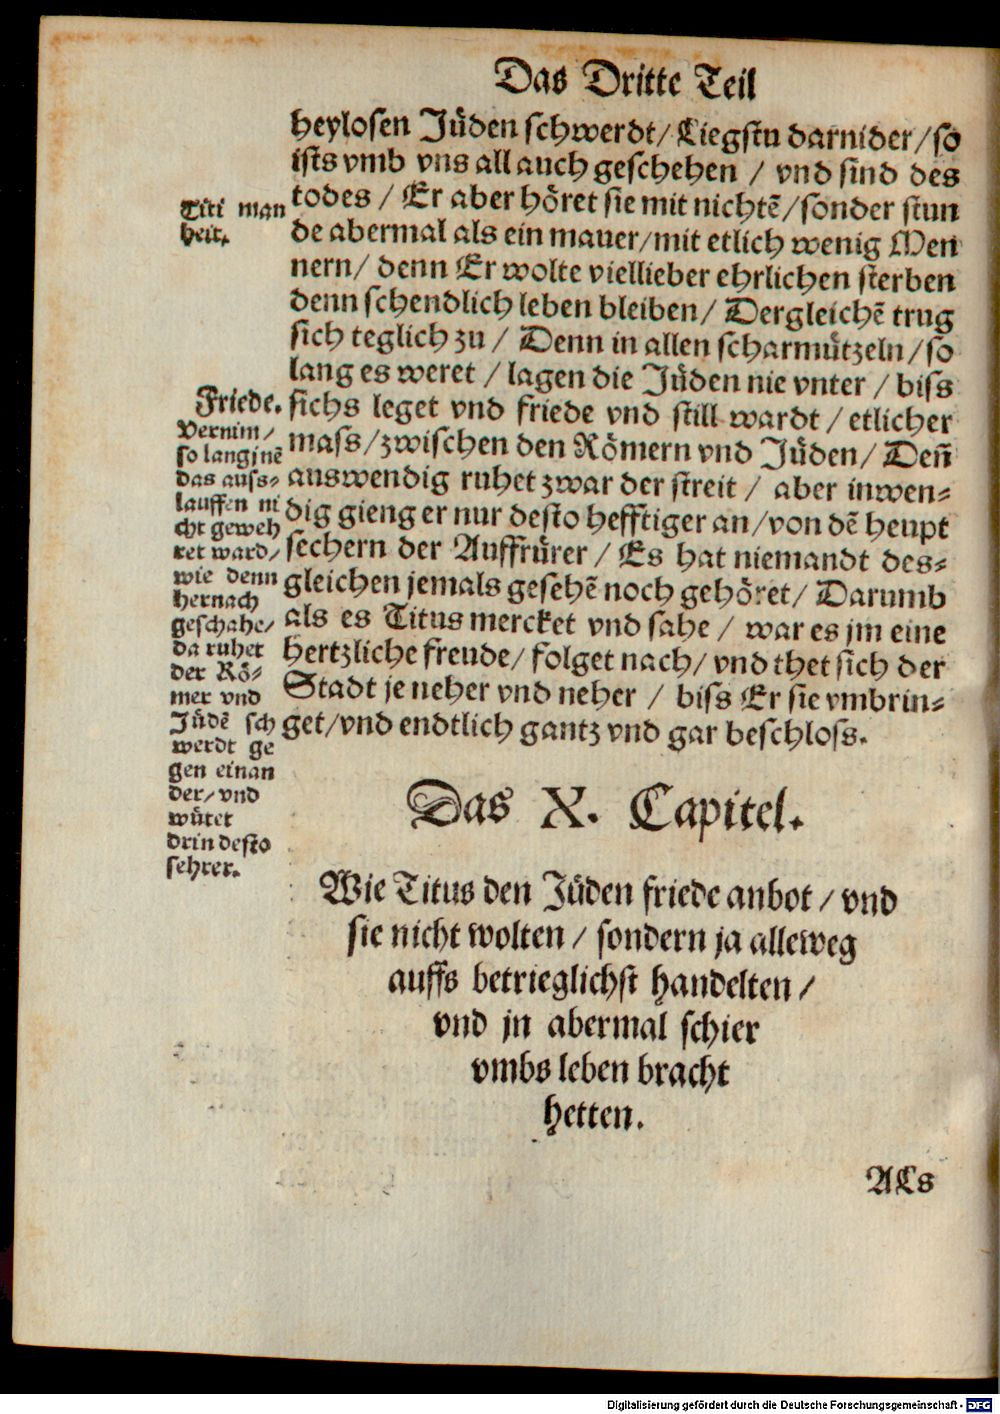 Das Dritte Teil
heylosen Jüden schwerdt/ Liegstu darnider/ so
ists vmb vns all auch geschehen / vnd sind des
todes / Er aber höret sie mit nichtē/ sonder stun
de abermal als ein mauer/ mit etlich wenig Men
nern/ denn Er wolte viellieber ehrlichen sterben
denn schendlich leben bleiben/ Dergleichē trug
sich teglich zu / Denn in allen scharmützeln/ so
lang es weret / lagen die Jüden nie vnter / biss
sichs leget vnd friede vnd still wardt / etlicher
mass/ zwischen den Römern vnd Jüden/ Deñ
auswendig ruhet zwar der streit / aber inwen-
dig gieng er nur desto hefftiger an/ von dē heupt
sechern der Auffrürer / Es hat niemandt des-
gleichen jemals gesehē noch gehöret/ Darumb
als es Titus mercket vnd sahe / war es jm eine
hertzliche freude/ folget nach/ vnd thet sich der
Stadt je neher vnd neher / biss Er sie vmbrin-
get/ vnd endtlich gantz vnd gar beschloss.
Titi man
heit.
Friede.
Vernim/
so lang jnē
das auss-
lauffen ni
cht geweh
ret ward/
wie denn
hernach
geschahe/
da ruhet
der Rö-
mer vnd
Jüdē sch
werdt ge
gen einan
der/ vnd
wütet
drin desto
sehrer.
Das X. Capitel.
Wie Titus den Jüden friede anbot / vnd
sie nicht wolten / sondern ja alleweg
auffs betrieglichst handelten /
vnd jn abermal schier
vmbs leben bracht
hetten.
ALs
Digitalisierung gefördert durch die Deutsche Forschungsgemeinschaft - DFG